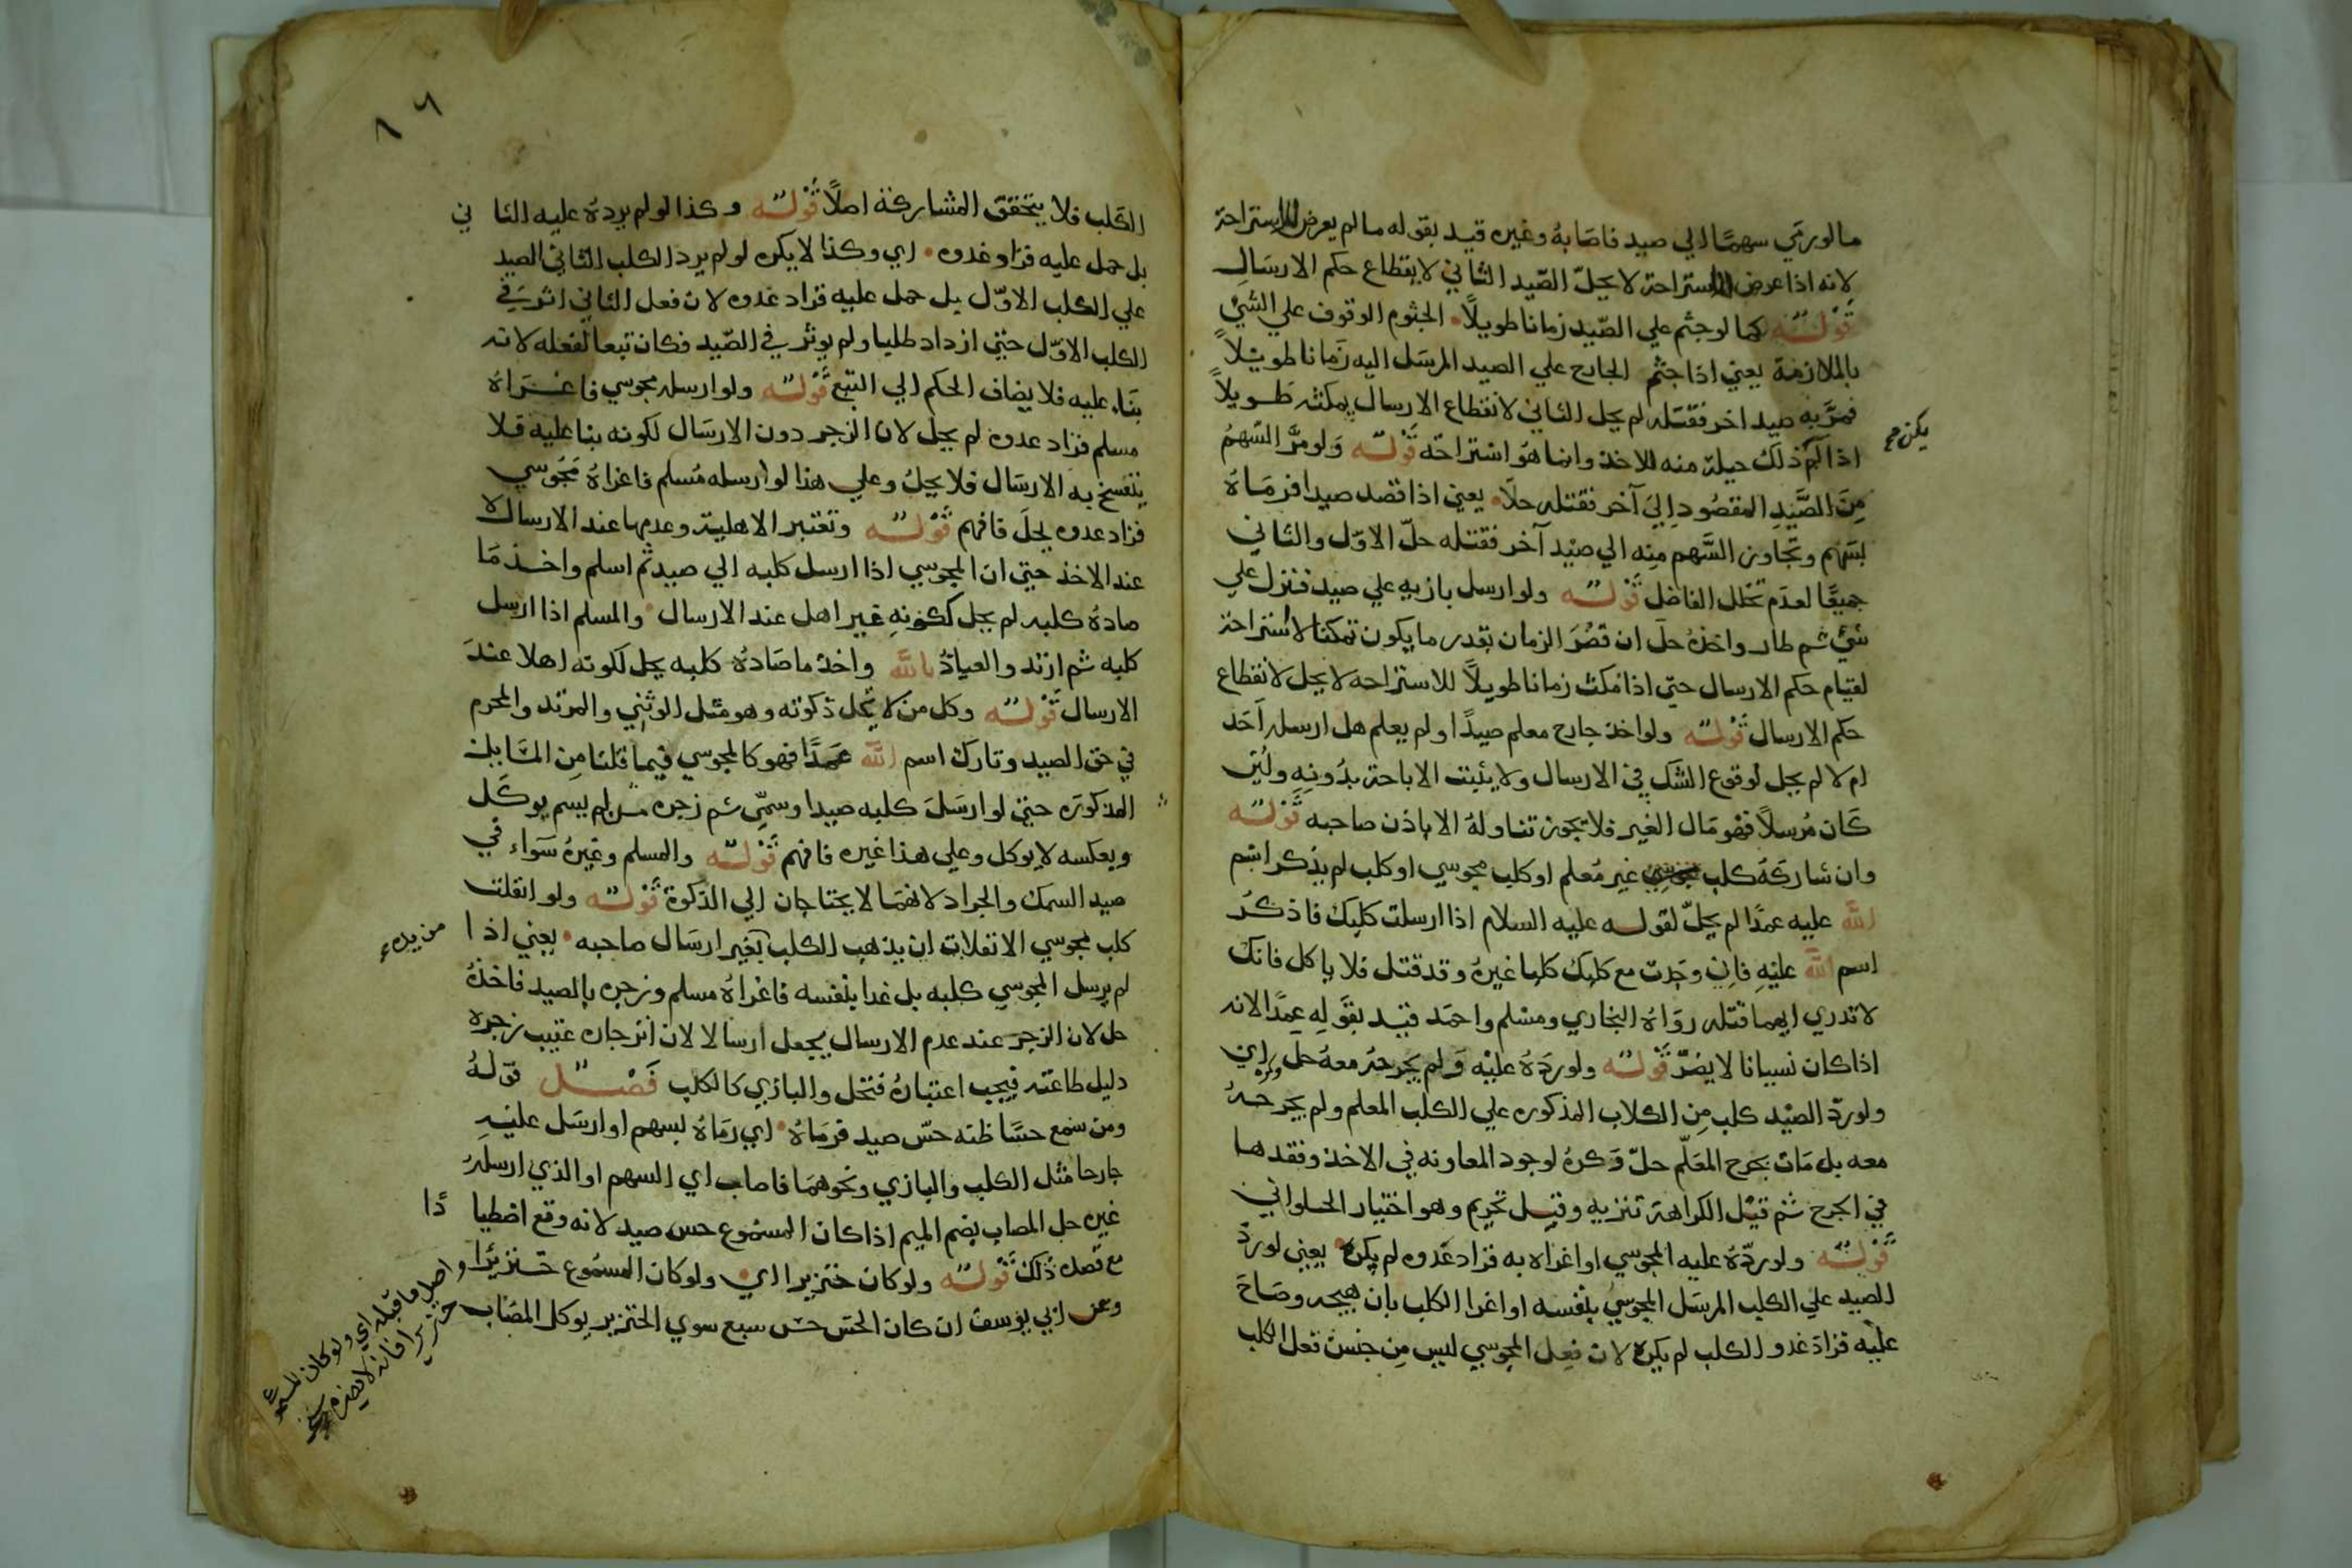 ما لو رمي سهمًا الي صيد فاصَابهُ وغيره قيد بقوله ما لم يعرض للاستراحة
لانه اذا عرض للاستراحة لا يحلّ الصّيد الثاني لانقطاع حكم الارسَالِ
قَوْلُـهُ كما لو جثم علي الصّيد زمانا طويلاً الجثوم الوقوف علي الشئ
بالملازمة يعني اذا جثم الجارح علي الصيد المرسَل اليه زَمانا طويْلاً
فمرَّ به صيد اخر فقتله لم يحل الثاني لانقطاع الارسال بمكثه طـويلاً
اذا لم ذلك حيلة منه للاخذ وانما هُوَ اسْتراحَة قَوْلُـهُ وَلو مرَّ السَّهمُ
يكن صح
مِنَ الصَّيَدِ المقصُود اِليَ آخر فقتله حلَا يعني اذا قصد صيدا فرمَاهُ
بسَهم وتجاوز السَّهم مِنه الي صيْد آخر فقتله حلّ الاوّل والثاني
جميعًا لعدَم تخلل الفاضل قَوْلُـهُ ولو ارسل بازيه علي صيد فنزل علي
شئ ثم طار واخذهُ حلَ ان قصُرَ الزمان بقدر ما يكون تمكنا لاسْتراحة
لقيام حكم الارسال حتي اذا مكث زمانا طويلاً للاستراحه لا يحل لانقطاع
حكم الارسال قَوْلُـهُ ولو اخذ جارح معلم صيدًا ولم يعلم هل ارسله اَحَد
ام لا لم يحل لوقوع الشك في الارسال ولا يثبت الاباحة بدُونِهِ ولئن
كَان مُرسلاً فهو مَال الغير فلا يجوز تناولهُ الا باذن صاحبه قَوْلُـهُ
وان شاركَهُ كلب غير مُعلم او كلب مجوسي او كلب لم يذكر اسْم
الله عليه عمدًا لم يحلّ لقولـه عليه السلام اذا ارسلت كلبك فاذكرُ
اسم الله عليْهِ فاِن وجَدت مع كلبك كلبا غيرهُ وقد قتل فلا ياكل فانك
لا تدري ايهما قتله روَاهُ البخاري ومسْلم واحمَد قيّد بقوَلِهِ عمدًا لانه
اذا كان نسيانا لا يضرّ قَوْلُـهُ ولو ردَهُ عليْه وَلم يَجرحهُ معهُ حل وكره اي
ولو ردّ الصيْد كلب مِن الكلاب المذكوره علي الكلب المعلم ولم يجرحـهُ
معه بل مَات بجرح المعَلّم حلّ وَكرهُ لوجود المعاونه في الاخذ وفقدهـا
في الجرح ثم قيْل الكراهة تنزيه وقيـل تحريم وهو اختيار الحلواني
قَوْلُـهُ ولو ردّهُ عليه المجوسي او اغراه به فزاد عَدوه لم يكره يعني لو ردّ
الصيد علي الكلب المرسَل المجوسيُ بنفسه او اغرا الكلب بان هيجه وصَاحَ
عليْه فزادَ عدو الكلب لم يكرهْ لان فِعل المجوسي ليس مِن جنس فعل الكلب
١٦
الكَلب فلا يتحقق المشاركة اصلاً قَوْلُـهُ وكذا لو لم يردهُ عليه الثا ني
بل حمل عليه فزاد غدوه اي وكذا لا يكره لو لم يرد الكلب الثاني الصيد
علي الكلب الاوّل بل حمل عليه فزاد عدوه لان فعل الثاني اثر في
الكلب الاوّل حتي ازداد طلبا ولم يوثر في الصّيد فكان تبعا لفعله لانه
بنَاء عليه فلا يضاف الحكم الي التبع قَوْلُـهُ ولو ارسله مجوسي فاغـراهُ
مسلم فزاد عدوه لم يحل لان الزجر دون الارسَال لكونه بنا عليه فلا
ينفسخ به الارسَال فلا يحلُ وعلي هذا لو ارسله مُسلم فاغراهُ مَجُوسي
فزاد عدوه يحلَ فافهم قَوْلُـهُ وتعتبر الاهلية وعدمها عند الارسال لا
عند الاخذ حتي ان المجوسي اذا ارسل كلبه الي صيد ثم اسلم واخـذ مَا
صادهُ كلبه لم يحل لكونهِ غير اهل عند الارسال والمسلم اذا ارسل
كلبه ثم ارتد والعياذُ بالله واخذ ما صَادهُ كلبه يحل لكونه اهلا عندَ
الارسال قَوْلُـهُ وكل من لا تحل ذكوته وهو مثل الوثني والمرتد والمحرم
في حق الصيد وتارك اسم الله عَمدًا فهو كالمجوسي فيما قلنا مِن المسَايل
المذكورَه حتي لو ارسَلَ كلبه صيدا وسمّي ثم زجره مـن لم يسم يوكَل
وبعكسه لا يوكل وعلي هذا غيره فافهم قَوْلُـهُ والمسلم وغيرهُ سَوَاء في
صيد السمك والجراد لانهمَا لا يحتاجان الي الذكوة قَوْلُـهُ ولو انفلت
كلب مجوسي الانفلات ان يذهب الكلب بغير ارسَال صاحبه يعني اذا
من يده
لم يرسل المجوسي كلبه بل غدا بنفسه فاغراهُ مسلم وزجره بالصيد فاخذهُ
حل لان الزجر عند عدم الارسال يجعل ارسالا لان انزجاره عقيب زجره
دليل طاعته فيجب اعتبارهُ فتحل والبازي كالكلب فَصْـــل قوَلـهُ
ومن سَمع حسًّا ظنه حسّ صيد فرمَاهُ اي رمَاهُ بسهم او ارسَل عليْـهِ
جارحا مثل الكلب والبازي ونحوهمَا فاصاب اي السهم او الذي ارسلهُ
غيره حل المصاب بضم الميم اذا كان المسمُوع حس صيد لانه وقع اصطيا دًا
مع قصده ذلك قَوْلُـهُ ولو كان خنزيرا اي ولو كان المسمُوع خـنزيرًا
واصل ما قبله اي ولو كان المسموع
خنزيرا فانه لا يضره
وعن ابي يوسف ان كان الحسّ حـس سبع سوي الخنزير يوكل المصَاب